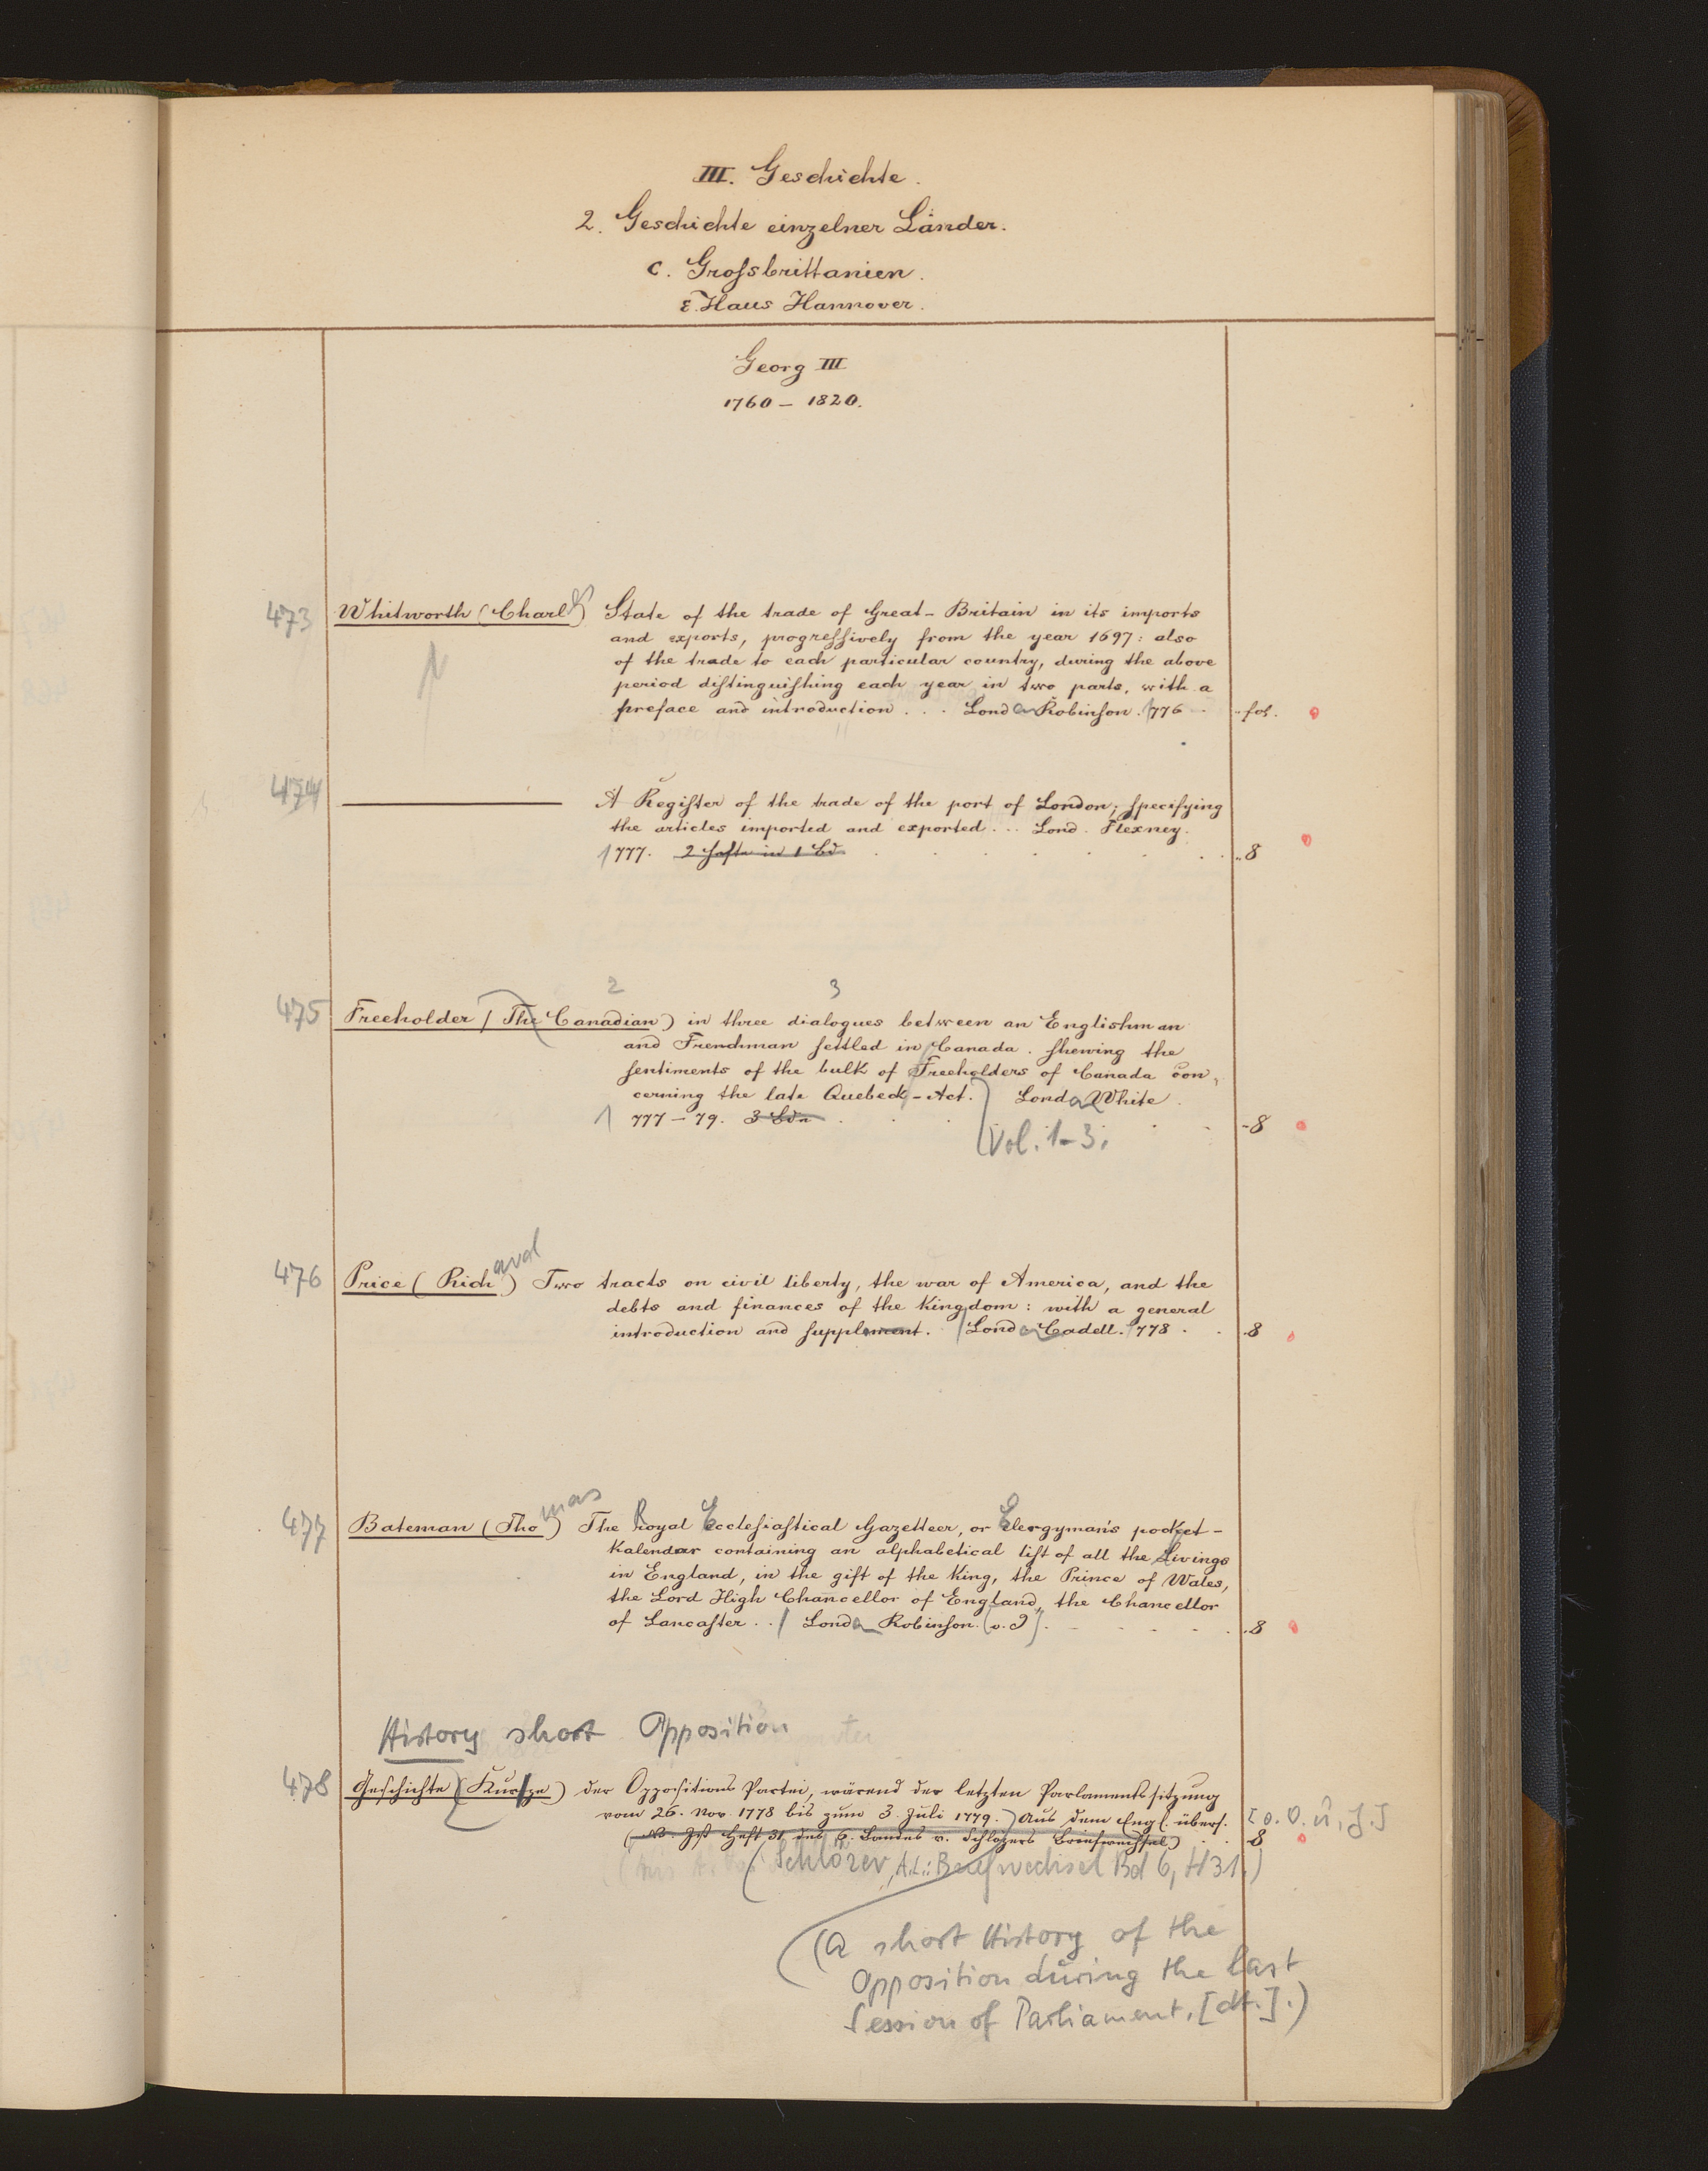 III. Geschichte.
2. Geschichte einzelner Länder.
c. Grossbrittanien.
ε. Haus Hannover.
Georg III
1760 – 1820.
473 Whitworth (Charles) State of the trade of Great-Britain in its imports
and exports, progressively from the year 1697: also
of the trade to each particular country, during the above
period distinguishing each year in two parts, with a
preface and introduction . . . Lond Robinson. 1776 fol.
474 ——— A Register of the trade of the port of London; specifying
the articles imported and exported ... Lond. Flexney.
1777. 2 Hefte in 1 Bd 8
2 3
475 Freeholder (The Canadian) in three dialogues between an Englishman
and Frenchman settled in Canada. shewing the
sentiments of the bulk of Freeholders of Canada con-
cerning the late Quebeck-Act. Lond White.
1777–79. 3 Bde 8
Vol. 1-3.
476 Price (Richard) Two tracts on civil liberty, the war of America, and the
debts and finances of the Kingdom: with a general
introduction and supplement. Lond Cadell. 1778 . . 8
477 Bateman (Thomas) The Royal Ecclesiastical Gazetteer, or Clergyman's pocket-
Kalendar containing an alphabetical list of all the Livings
in England, in the gift of the King, the Prince of Wales,
the Lord High Chancellor of England, the Chancellor
of Lancaster . . Lond Robinson. (o. J) 8
History short Opposition
478 Geschichte (Kurze) der Oppositions Partei, wärend der letzten Parlamentssitzung
vom 26. Nov. 1778 bis zum 3. Juli 1779. Aus dem Engl. übers. [o. O. u. J.]
(NB. Ist Heft 31 des 6. Bandes v. Schlözers Briefwechsel) 8
(Schlözer, A.L.: Briefwechsel Bd 6, H 31.)
(a short History of the
Opposition during the last
Session of Parliament. [dt.].)